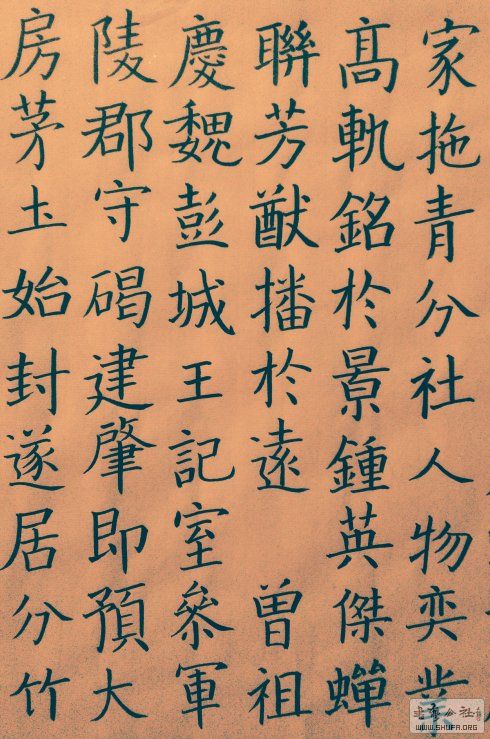 家拖青分社人物奕
髙軌銘於景鍾英傑蟬
聯芳猷播於遠 曾祖
慶魏彭城王記室參軍
陵郡守碣建肇即預大
房茅土始封遂居分竹
WWW.SHUFA.ORG